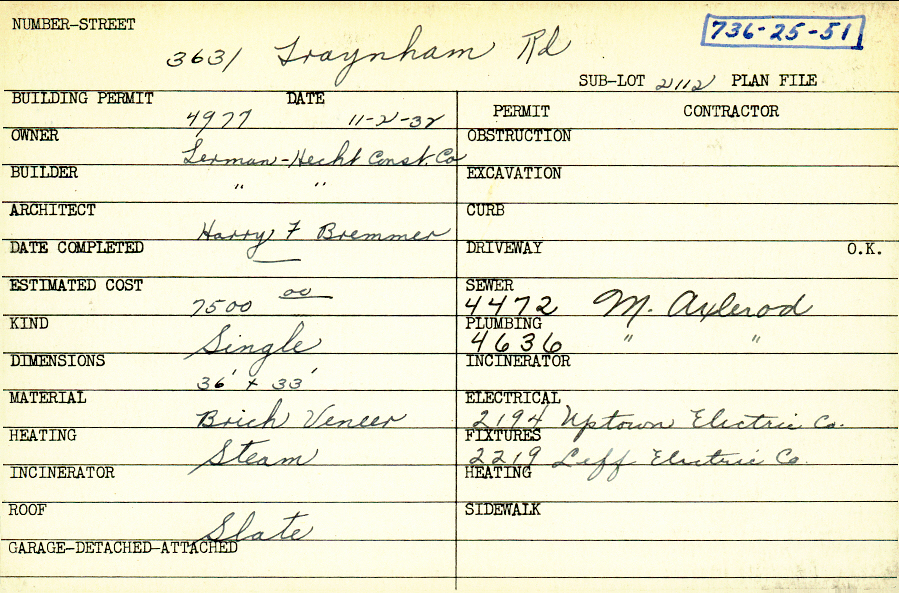 NUMBER-STREET
736-25-51
3631 Traynham Rd
SUB-LOT 2112 PLAN FILE
BUILDING PERMIT DATE
4977 11-2-32
OWNER
Lerman-Hecht Const. Co
BUILDER
" "
ARCHITECT
Harry F Bremmer
DATE COMPLETED
—
ESTIMATED COST
7500 00
KIND
Single
DIMENSIONS
36' x 33'
MATERIAL
Brick Veneer
HEATING
Steam
INCINERATOR
ROOF
Slate
GARAGE-DETACHED-ATTACHED
PERMIT CONTRACTOR
OBSTRUCTION
EXCAVATION
CURB
DRIVEWAY O.K.
SEWER
4472 M. Axlerod
PLUMBING
4636 " "
INCINERATOR
ELECTRICAL
2194 Uptown Electric Co.
FIXTURES
2219 Leff Electric Co.
HEATING
SIDEWALK